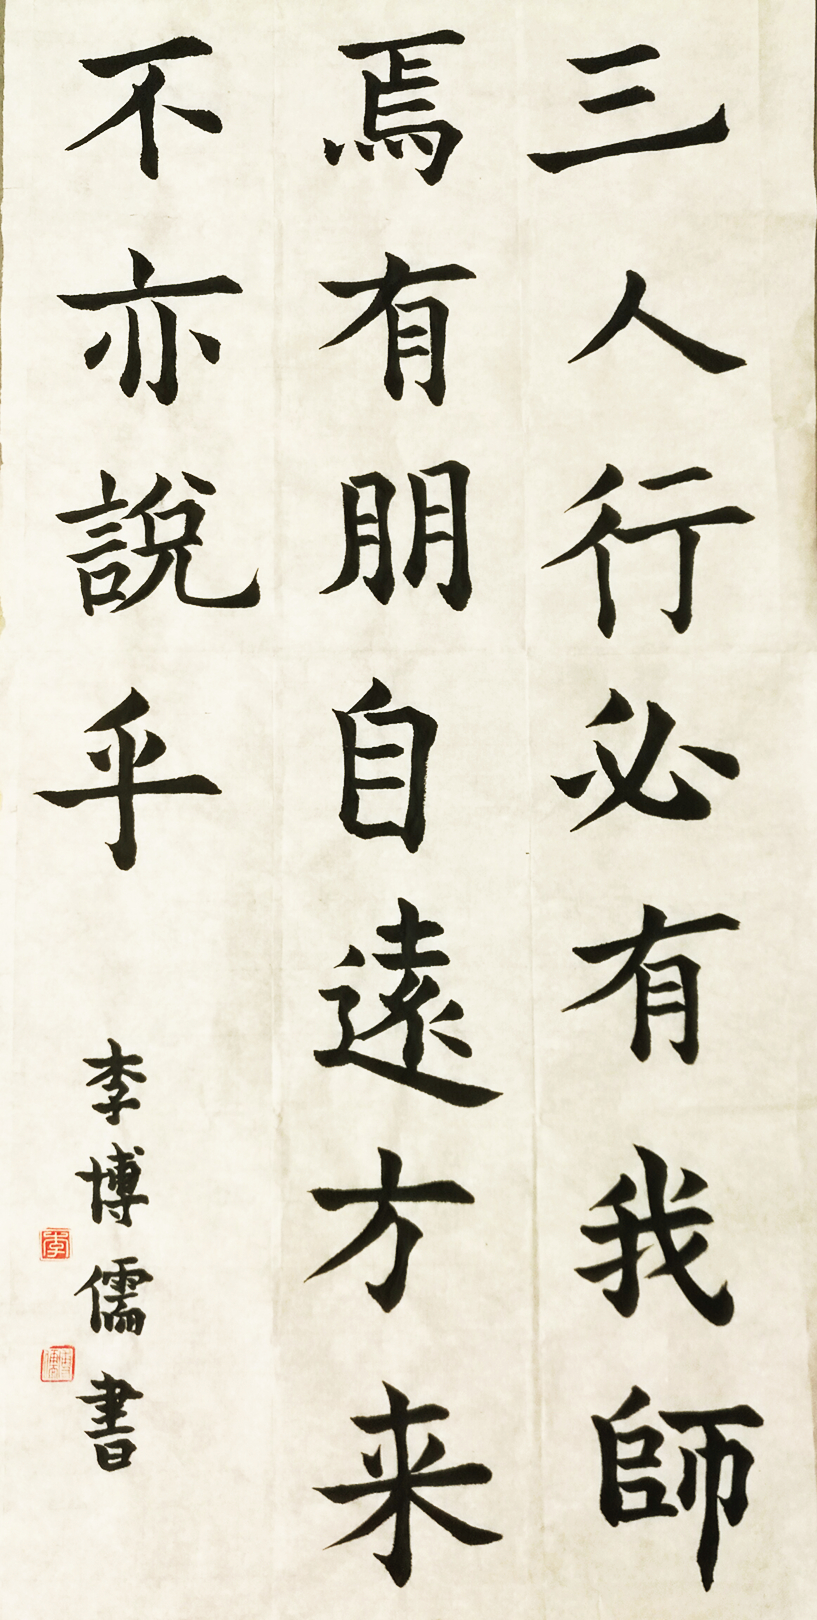 三人行必有我師
焉有朋自遠方来
不亦說乎
李博儒書
李
博儒